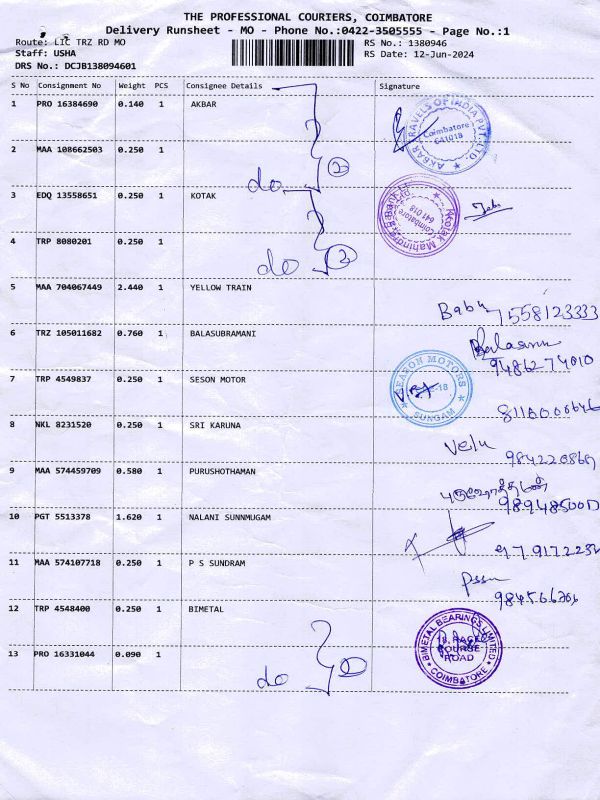 THE PROFESSIONAL COURIERS, COIMBATORE
Delivery Runsheet - MO - Phone No.:0422-3505555 - Page No.:1
Route: LIC TRZ RD MO
RS No.: 1380946
Staff: USHA
RS Date: 12-Jun-2024
DRS No.: DCJB138094601
S No Consignment No Weight PCS Consignee Details Signature
1 PRO 16384690 0.140 1 AKBAR
AKBAR TRAVELS OF INDIA PVT. LTD.
Coimbatore
641018
2 MAA 108662503 0.250 1
do 2
3 EDQ 13558651 0.250 1 KOTAK
Kotak Mahindra Bank
Coimbatore
641 018
4 TRP 8080201 0.250 1
do 2
5 MAA 704067449 2.440 1 YELLOW TRAIN
Babu 7558123333
6 TRZ 105011682 0.760 1 BALASUBRAMANI
9486274010
7 TRP 4549837 0.250 1 SESON MOTOR
SEASON MOTORS
SUNGAM
8 NKL 8231520 0.250 1 SRI KARUNA
Velu
9 MAA 574459709 0.580 1 PURUSHOTHAMAN
புருஷோத்தமன்
10 PGT 5513378 1.620 1 NALANI SUNNMUGAM
11 MAA 574107718 0.250 1 P S SUNDRAM
12 TRP 4548400 0.250 1 BIMETAL
BIMETAL BEARINGS LIMITED
18, RACE
COURSE
ROAD
COIMBATORE
13 PRO 16331044 0.090 1
do 2